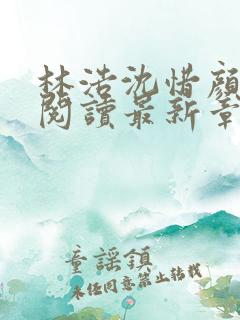 林浩沈惜顏
閱讀最新章
童謠鎮
未經同意禁止轉載